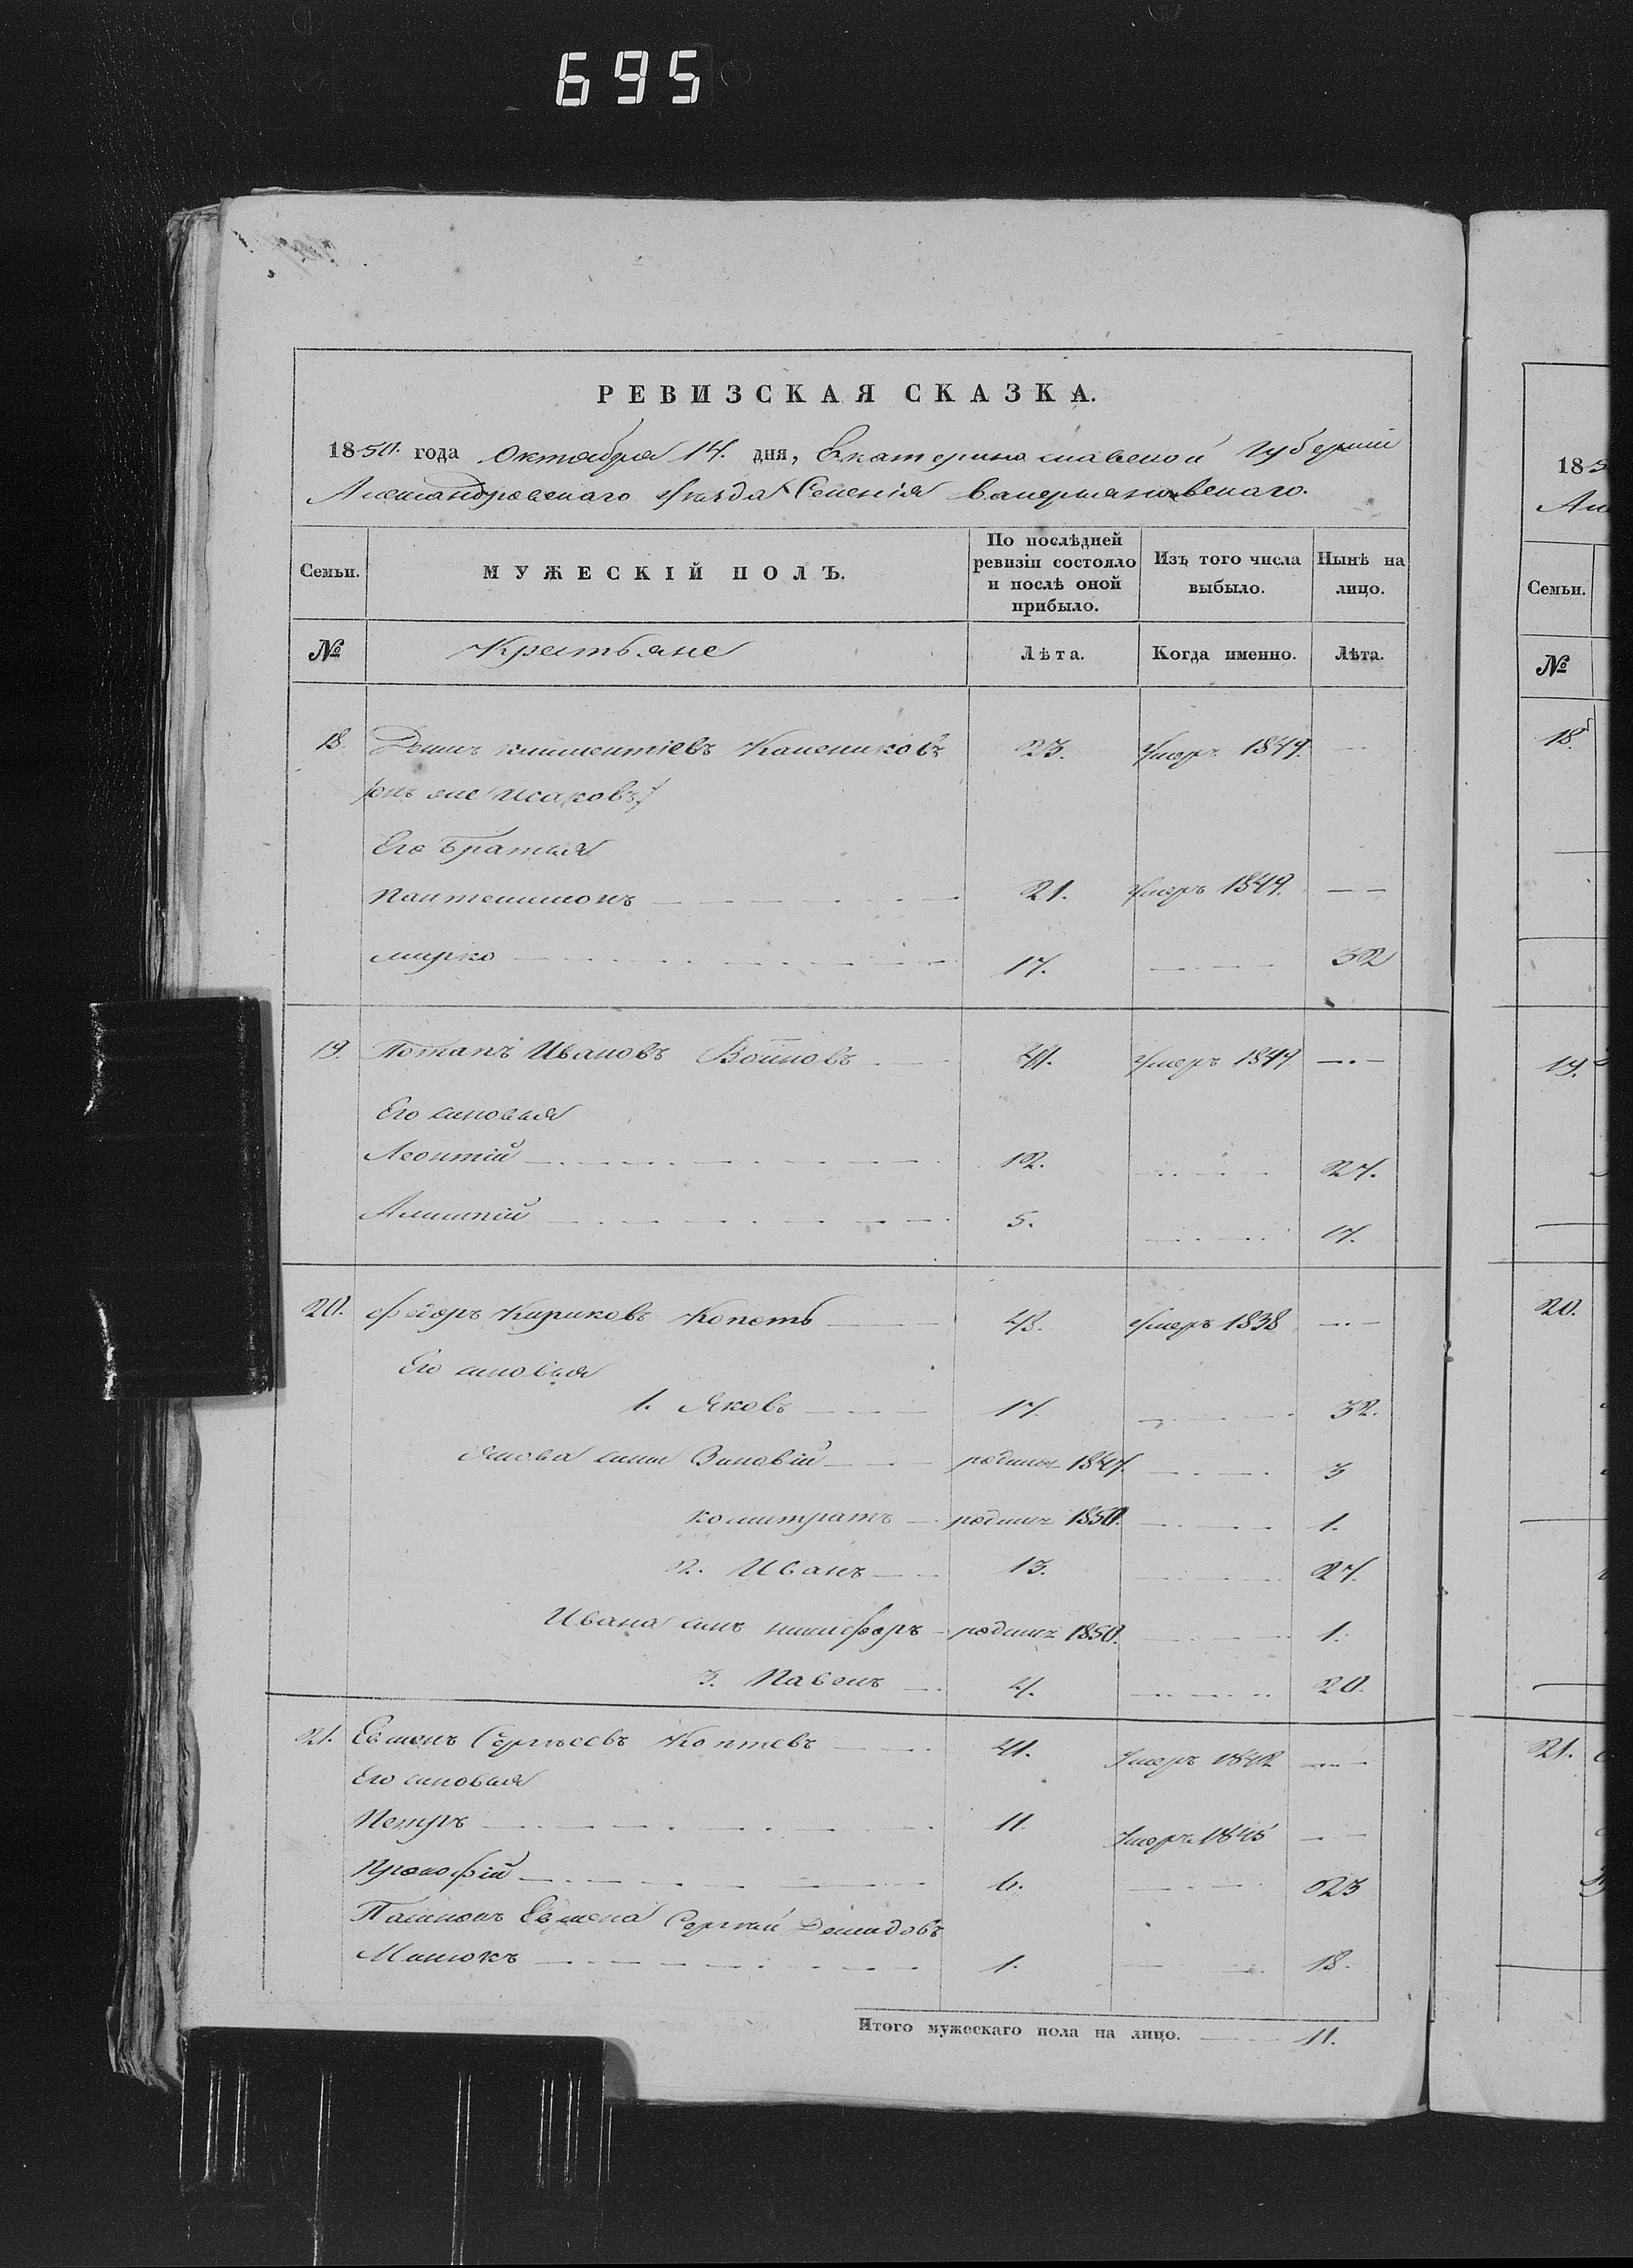 695
РЕВИЗСКАЯ СКАЗКА.
1850. года Октября 14. дня, Екатеринославской Губерніи
Александровскаго Уѣзда Селенія
Семьи. МУЖЕСКІЙ ПОЛЪ. По послѣдней ревизіи состояло и послѣ оной прибыло. Изъ того числа выбыло. Нынѣ на лицо.
№ Крестьяне Лѣта. Когда именно. Лѣта.
18. Климентіевъ 23. Умеръ 1849.
онъ же Исаковъ
Его братья
Пантелимонъ 21. Умеръ 1849.
Марко 17. 32
19. Потапъ Ивановъ Воиновъ Умеръ 1849
Его сыновья
Леонтій 12. 27.
5. 17.
20. Федоръ Кириковъ Копоть 43. Умеръ 1838
Его сыновья
1. Яковъ 17. 32.
Якова сыны Зиновій родился 1847. 3
родился 1850. 1.
2. Иванъ 13. 27.
Ивана сынъ Никифоръ родился 1850. 1.
3. Павелъ 4. 20.
21. Евменъ Сергѣевъ Коптевъ 41. Умеръ 1842
Его сыновья
Петръ 11 Умеръ 1845
Прокофій 6. 23
Евмена Сергѣй Демидовъ
1. 18.
Итого мужескаго пола на лицо. 11.
185
18.
Семьи.
№
18.
19.
20.
21.